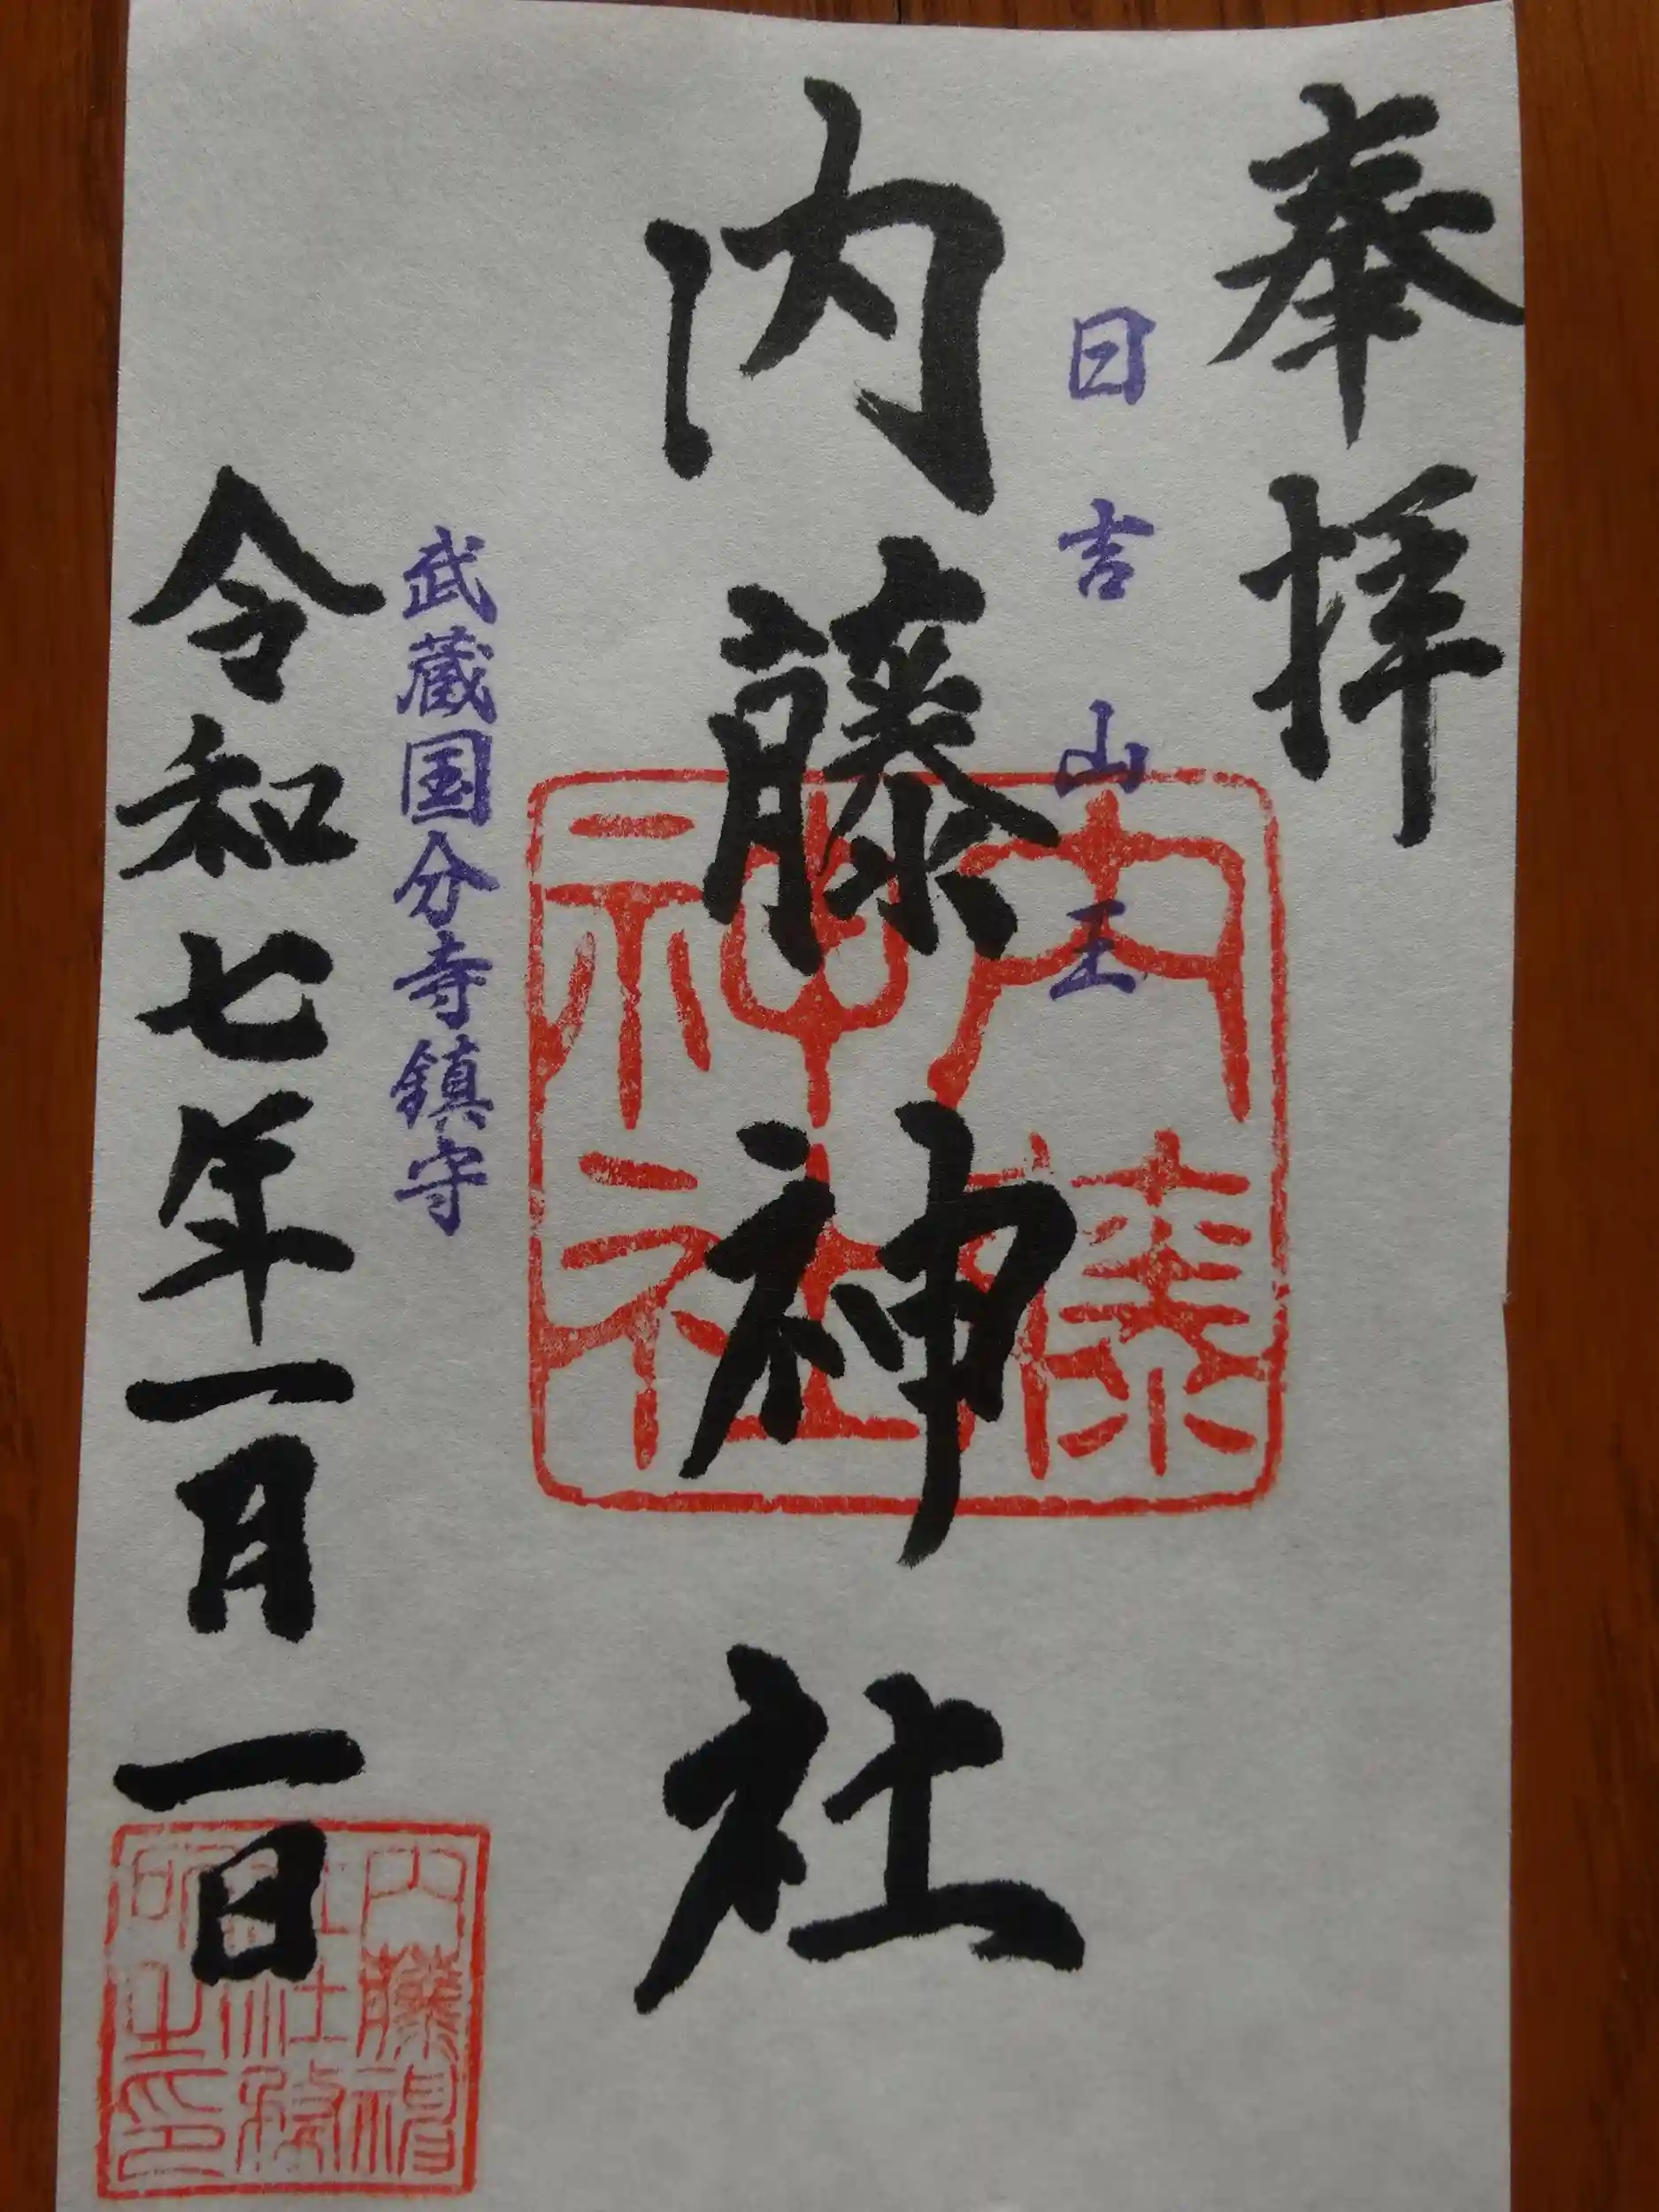 奉拝
日吉山王
内藤神社
内藤神社
武蔵国分寺鎮守
令和七年一月一日
内藤神社社務所之印